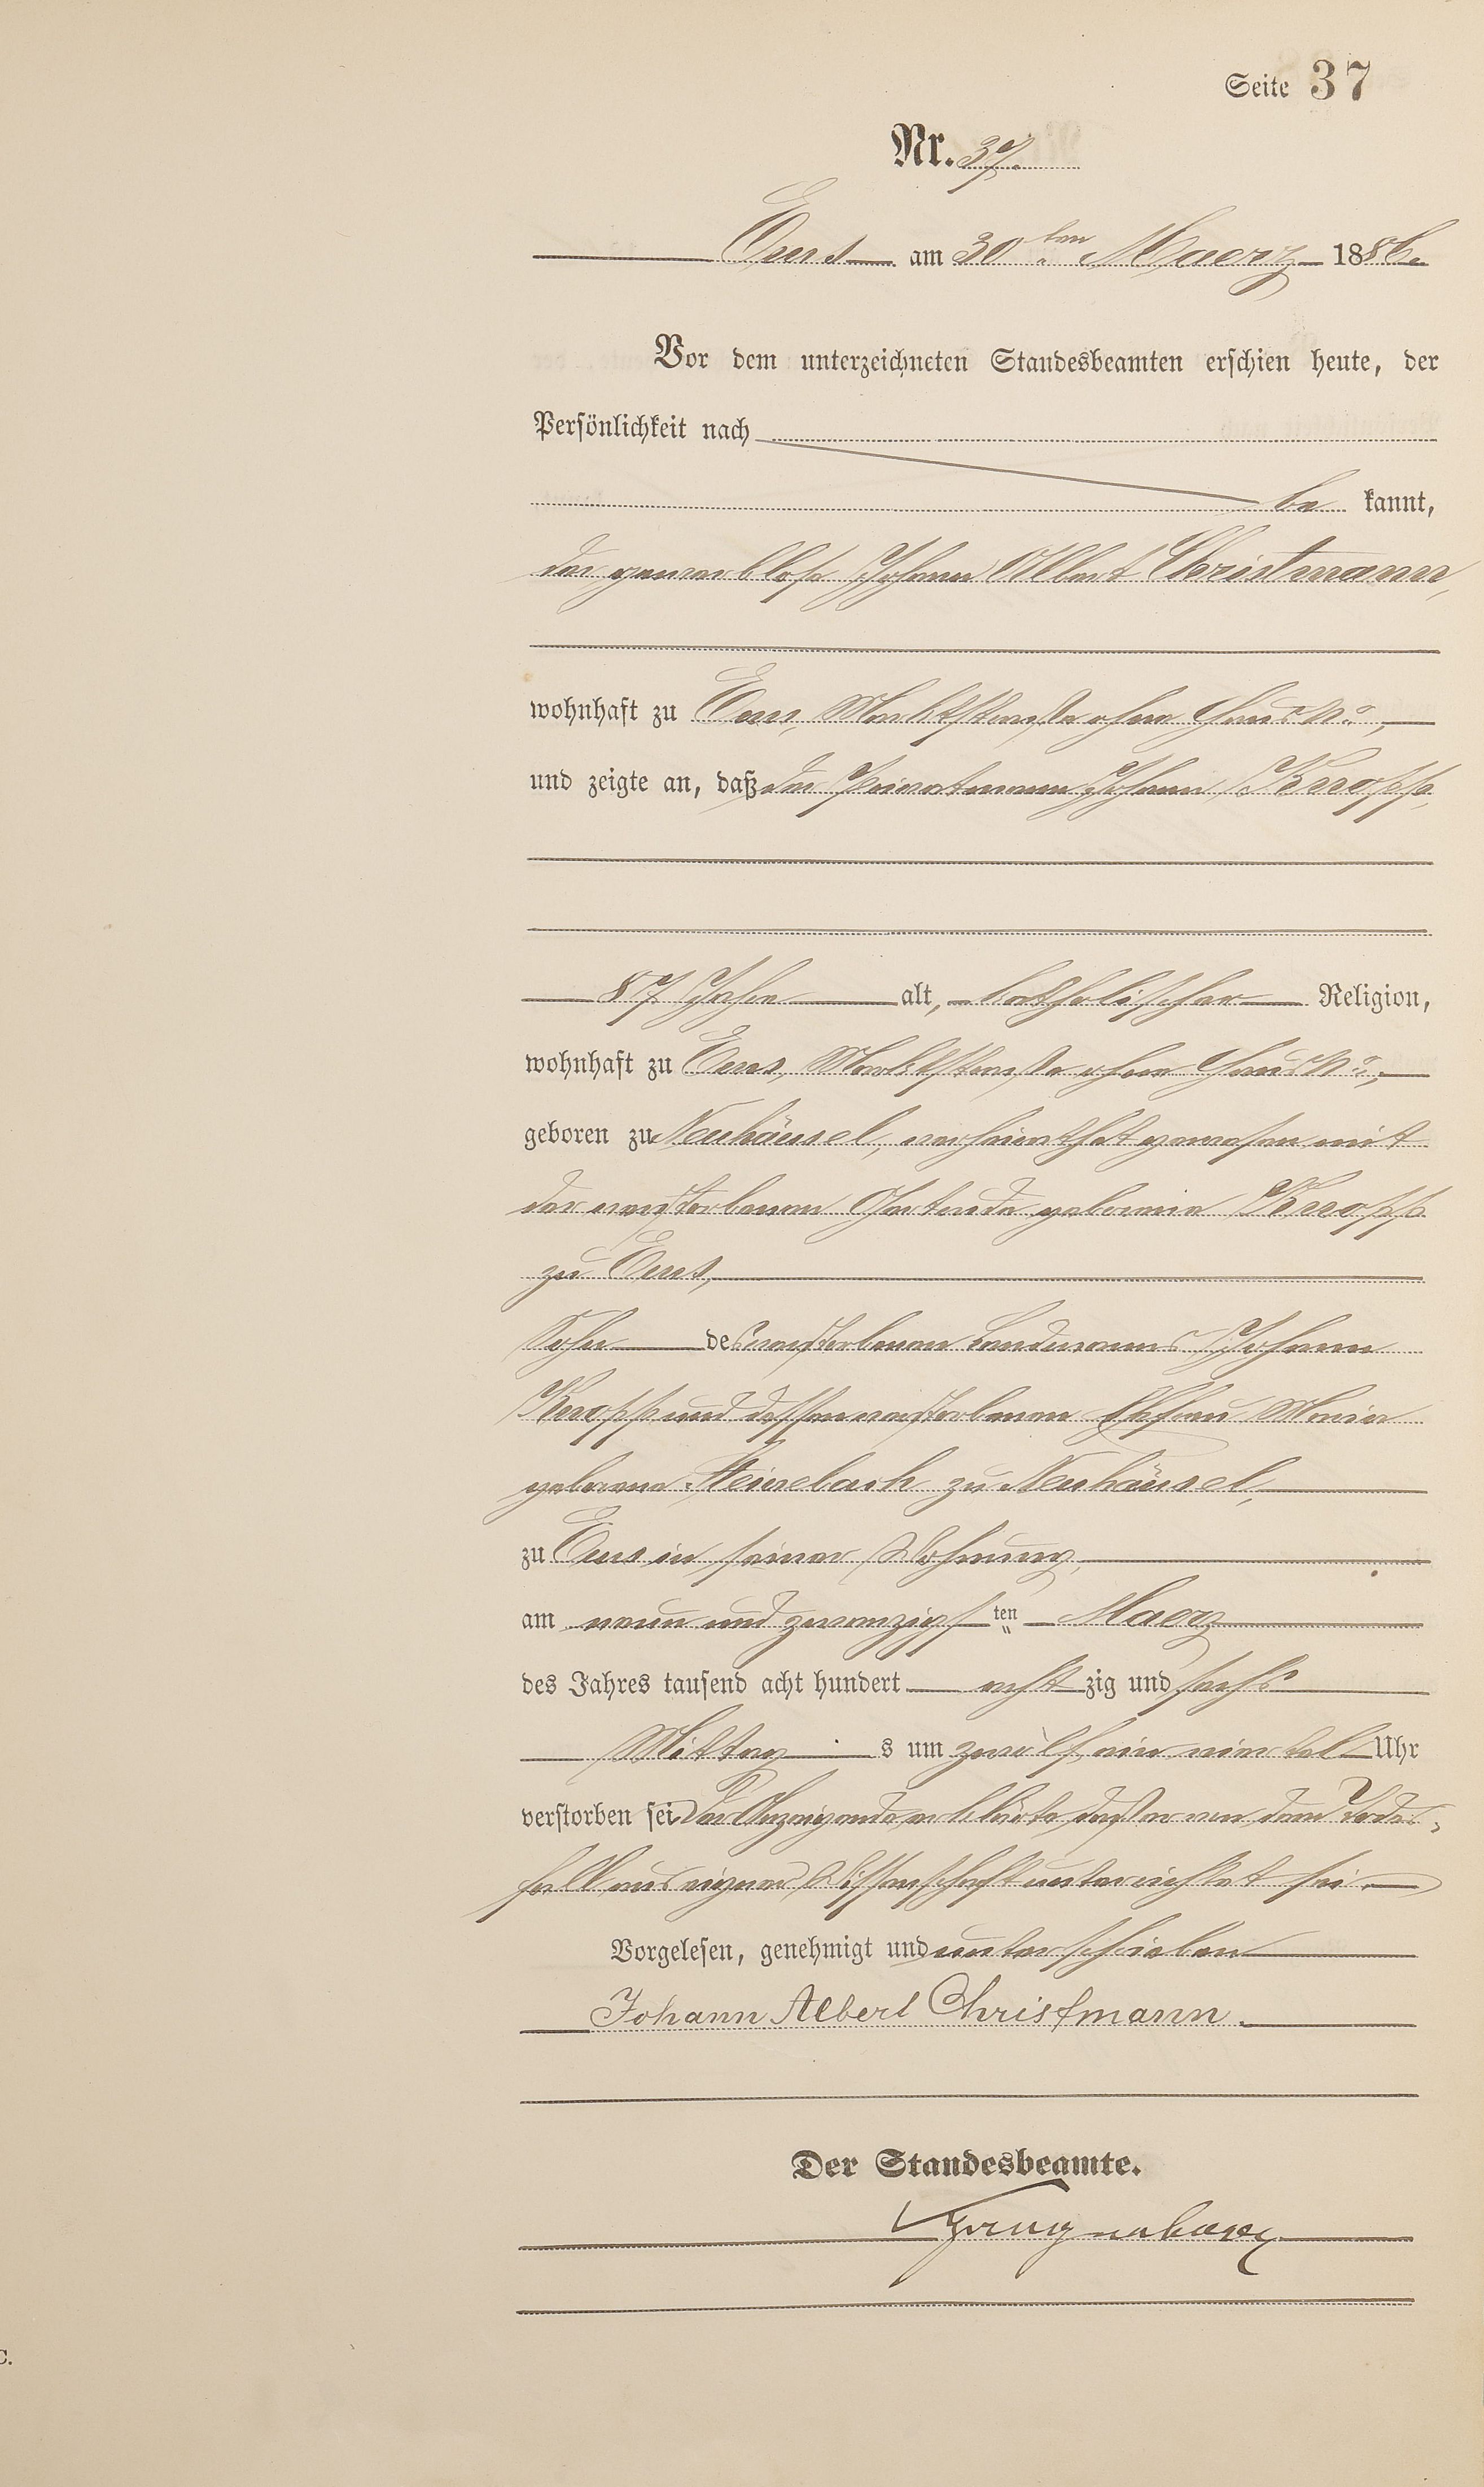 Seite 37
Nr. 37.
Ems am 30ten Maerz 1886.
Vor dem unterzeichneten Standesbeamten erschien heute, der
Persönlichkeit nach
be kannt,
der gewerblose Johann Albert Christmann,
wohnhaft zu Ems, Marktstraße ohne Haus No,
und zeigte an, daß der Privatmann Johann Knopp,
87 Jahre alt, katholischer Religion,
wohnhaft zu Ems, Marktstraße ohne Haus No,
geboren zu Neuhäusel, verheirathet gewesen mit
der verstorbenen Gertrude geborene Knopp
zu Ems,
Sohn des verstorbenen Landmanns Johann
Knopp und dessen verstorbenen Ehefrau Maria
geborene Steinebach zu Neuhäusel,
zu Ems in seiner Wohnung,
am neun und zwanzigsten Maerz
des Jahres tausend acht hundert acht zig und sechs
Mittag s um zwölf, ein viertel Uhr
verstorben sei. Der Anzeigende erklärte, daß er von dem Todes-
fall aus eigner Wissenschaft unterrichtet sei.
Vorgelesen, genehmigt und unterschrieben
Johann Albert Christmann.
Der Standesbeamte.
C.